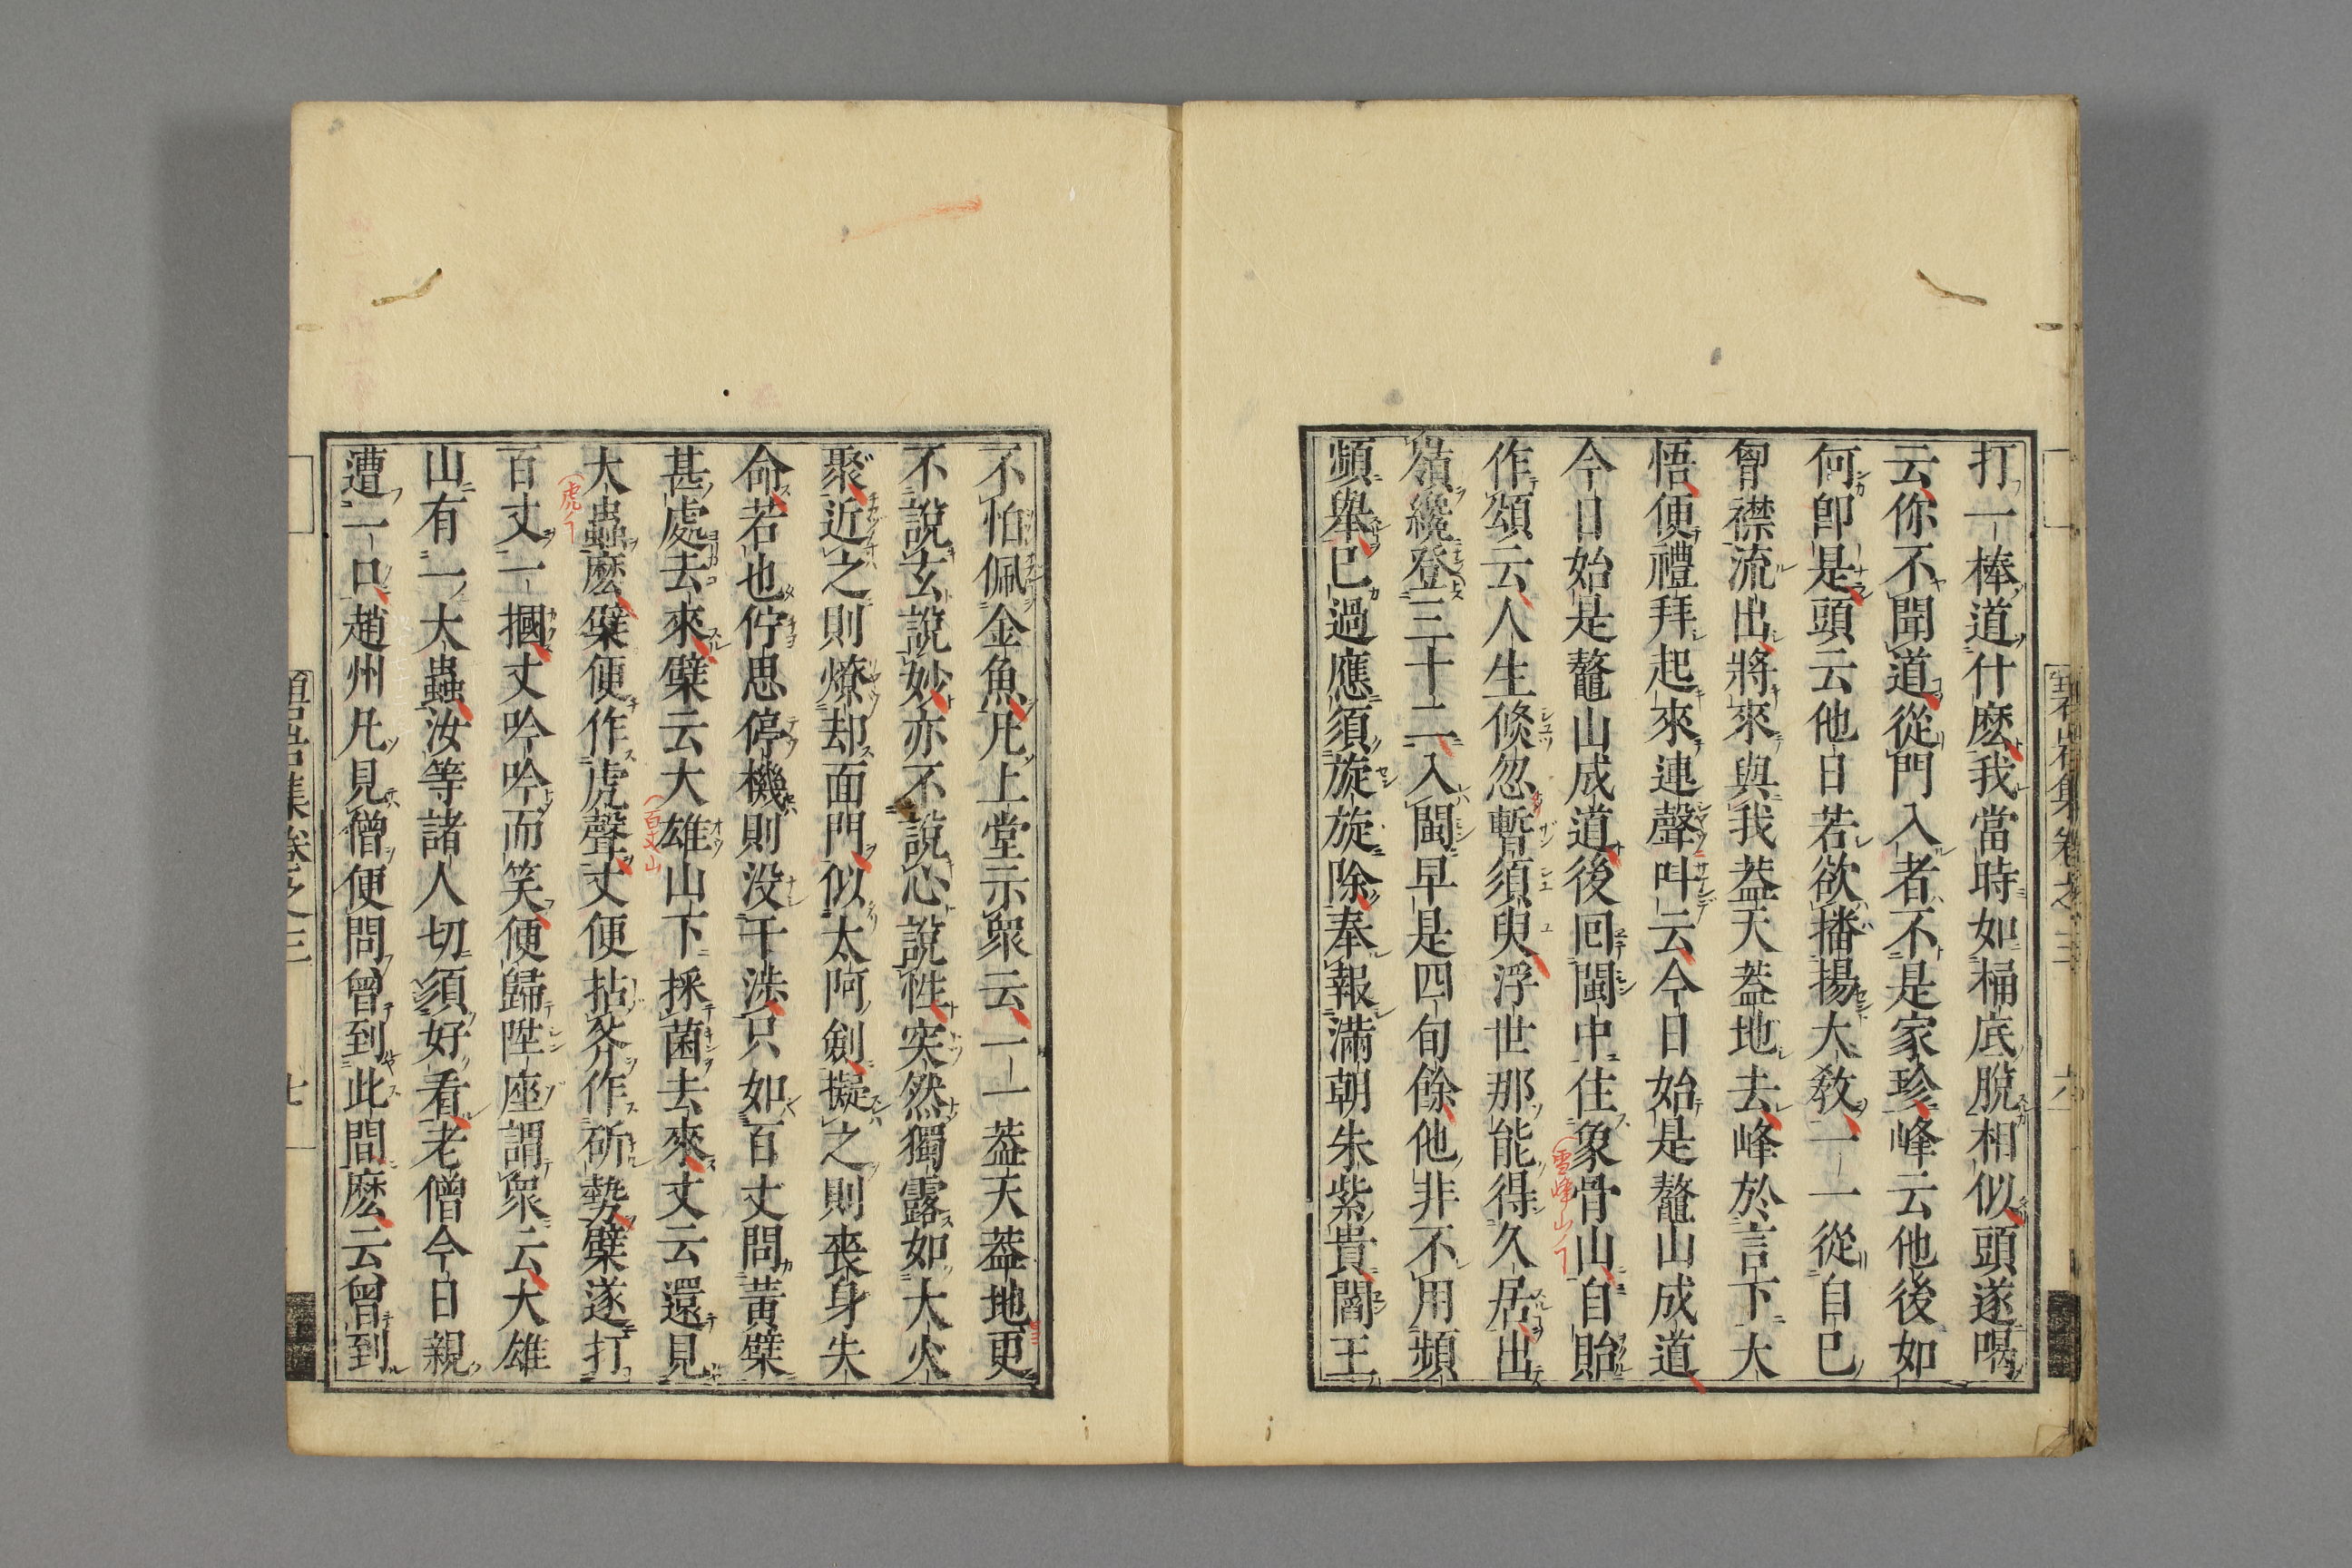 打一棒道什麽我當時如桶底脫相似頭遂喝
云你不聞道從門入者不是家珍峰云他後如
何卽是頭云他日若欲播揚大敎一一從自己
胷襟流出將來與我葢天葢地去峰於言下大
悟便禮拜起來連聲叫云今日始是鼇山成道
今日始是鼇山成道後回閩中住象骨山自貽
作頌云人生倐忽暫須臾浮世那能得久居出
嶺纔登三十二入閩早是四旬餘他非不用頻
頻舉已過應須旋旋除奉報滿朝朱紫貴閻王
不怕佩金魚凡上堂示衆云一一葢天葢地更
不說玄說妙亦不說心說性突然獨露如大火
聚近之則燎却面門似太阿劍擬之則喪身失
命若也佇思停機則没干涉只如百丈問黃檗
甚處去來檗云大雄山下採菌去來丈云還見
大蟲麽檗便作虎聲丈便拈斧作斫勢檗遂打
百丈一摑丈吟吟而笑便歸陞座謂衆云大雄
山有一大蟲汝等諸人切須好看老僧今日親
遭一口趙州凡見僧便問曾到此間麽云曾到
雪峰山
百丈山
虎
碧岩集卷之三
六
碧岩集卷之三
七